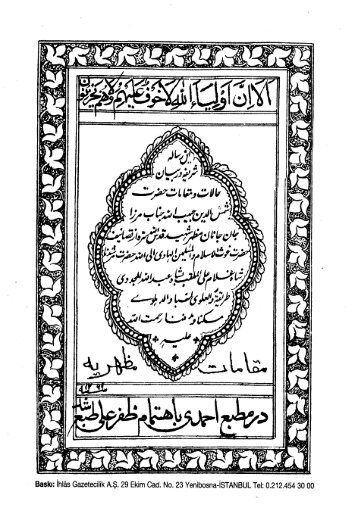 الا ان اولیاء الله لا خوف علیهم ولا هم یحزنون
این رساله
شریفه در بیان
حالات و مقامات حضرت
شمس الدین حبیب الله جناب مرزا
جان جانان مظهر شهید قدس سره از تصانیف
حضرت
شاه غلام علی الملقب بشاه عبد الله المجددی
طریقة و
مسکنا و مدفنا رحمت الله
علیه
مقامات مظهریه
در مطبع احمدی باهتمام ظفر علی طبع شد
Baskı: İhlâs Gazetecilik A.Ş. 29 Ekim Cad. No. 23 Yenibosna-İSTANBUL Tel: 0.212.454 30 00